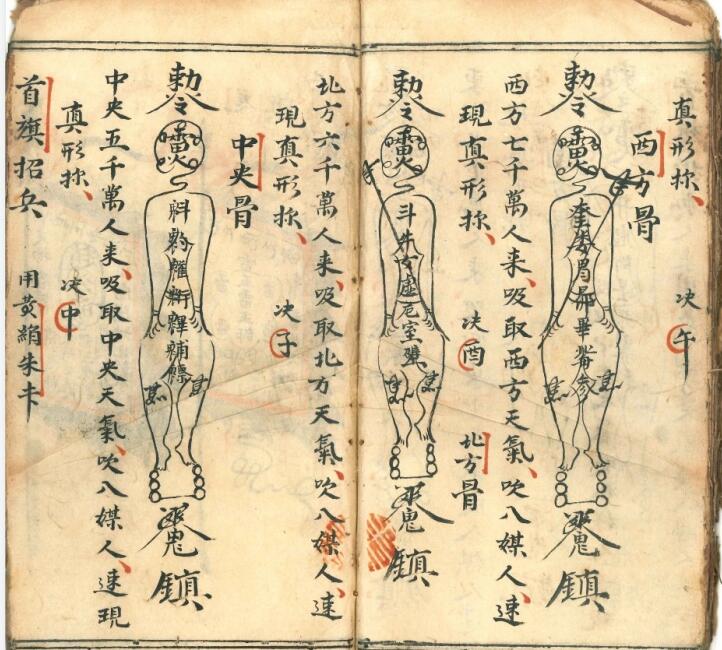 真形
决午
西方骨
勅令
奎婁胃昴畢觜參
鎮
西方七千萬人来、吸取西方天氣、吹八媒人、速
現真形
决酉
北方骨
勅令
斗牛女虛危室壁
鎮
北方六千萬人来、吸取北方天氣、吹八媒人、速
現真形
决子
中央骨
勅令
鎮
中央五千萬人来、吸取中央天氣、吹八媒人、速現
真形
决中
首旗招兵
用黄絹朱